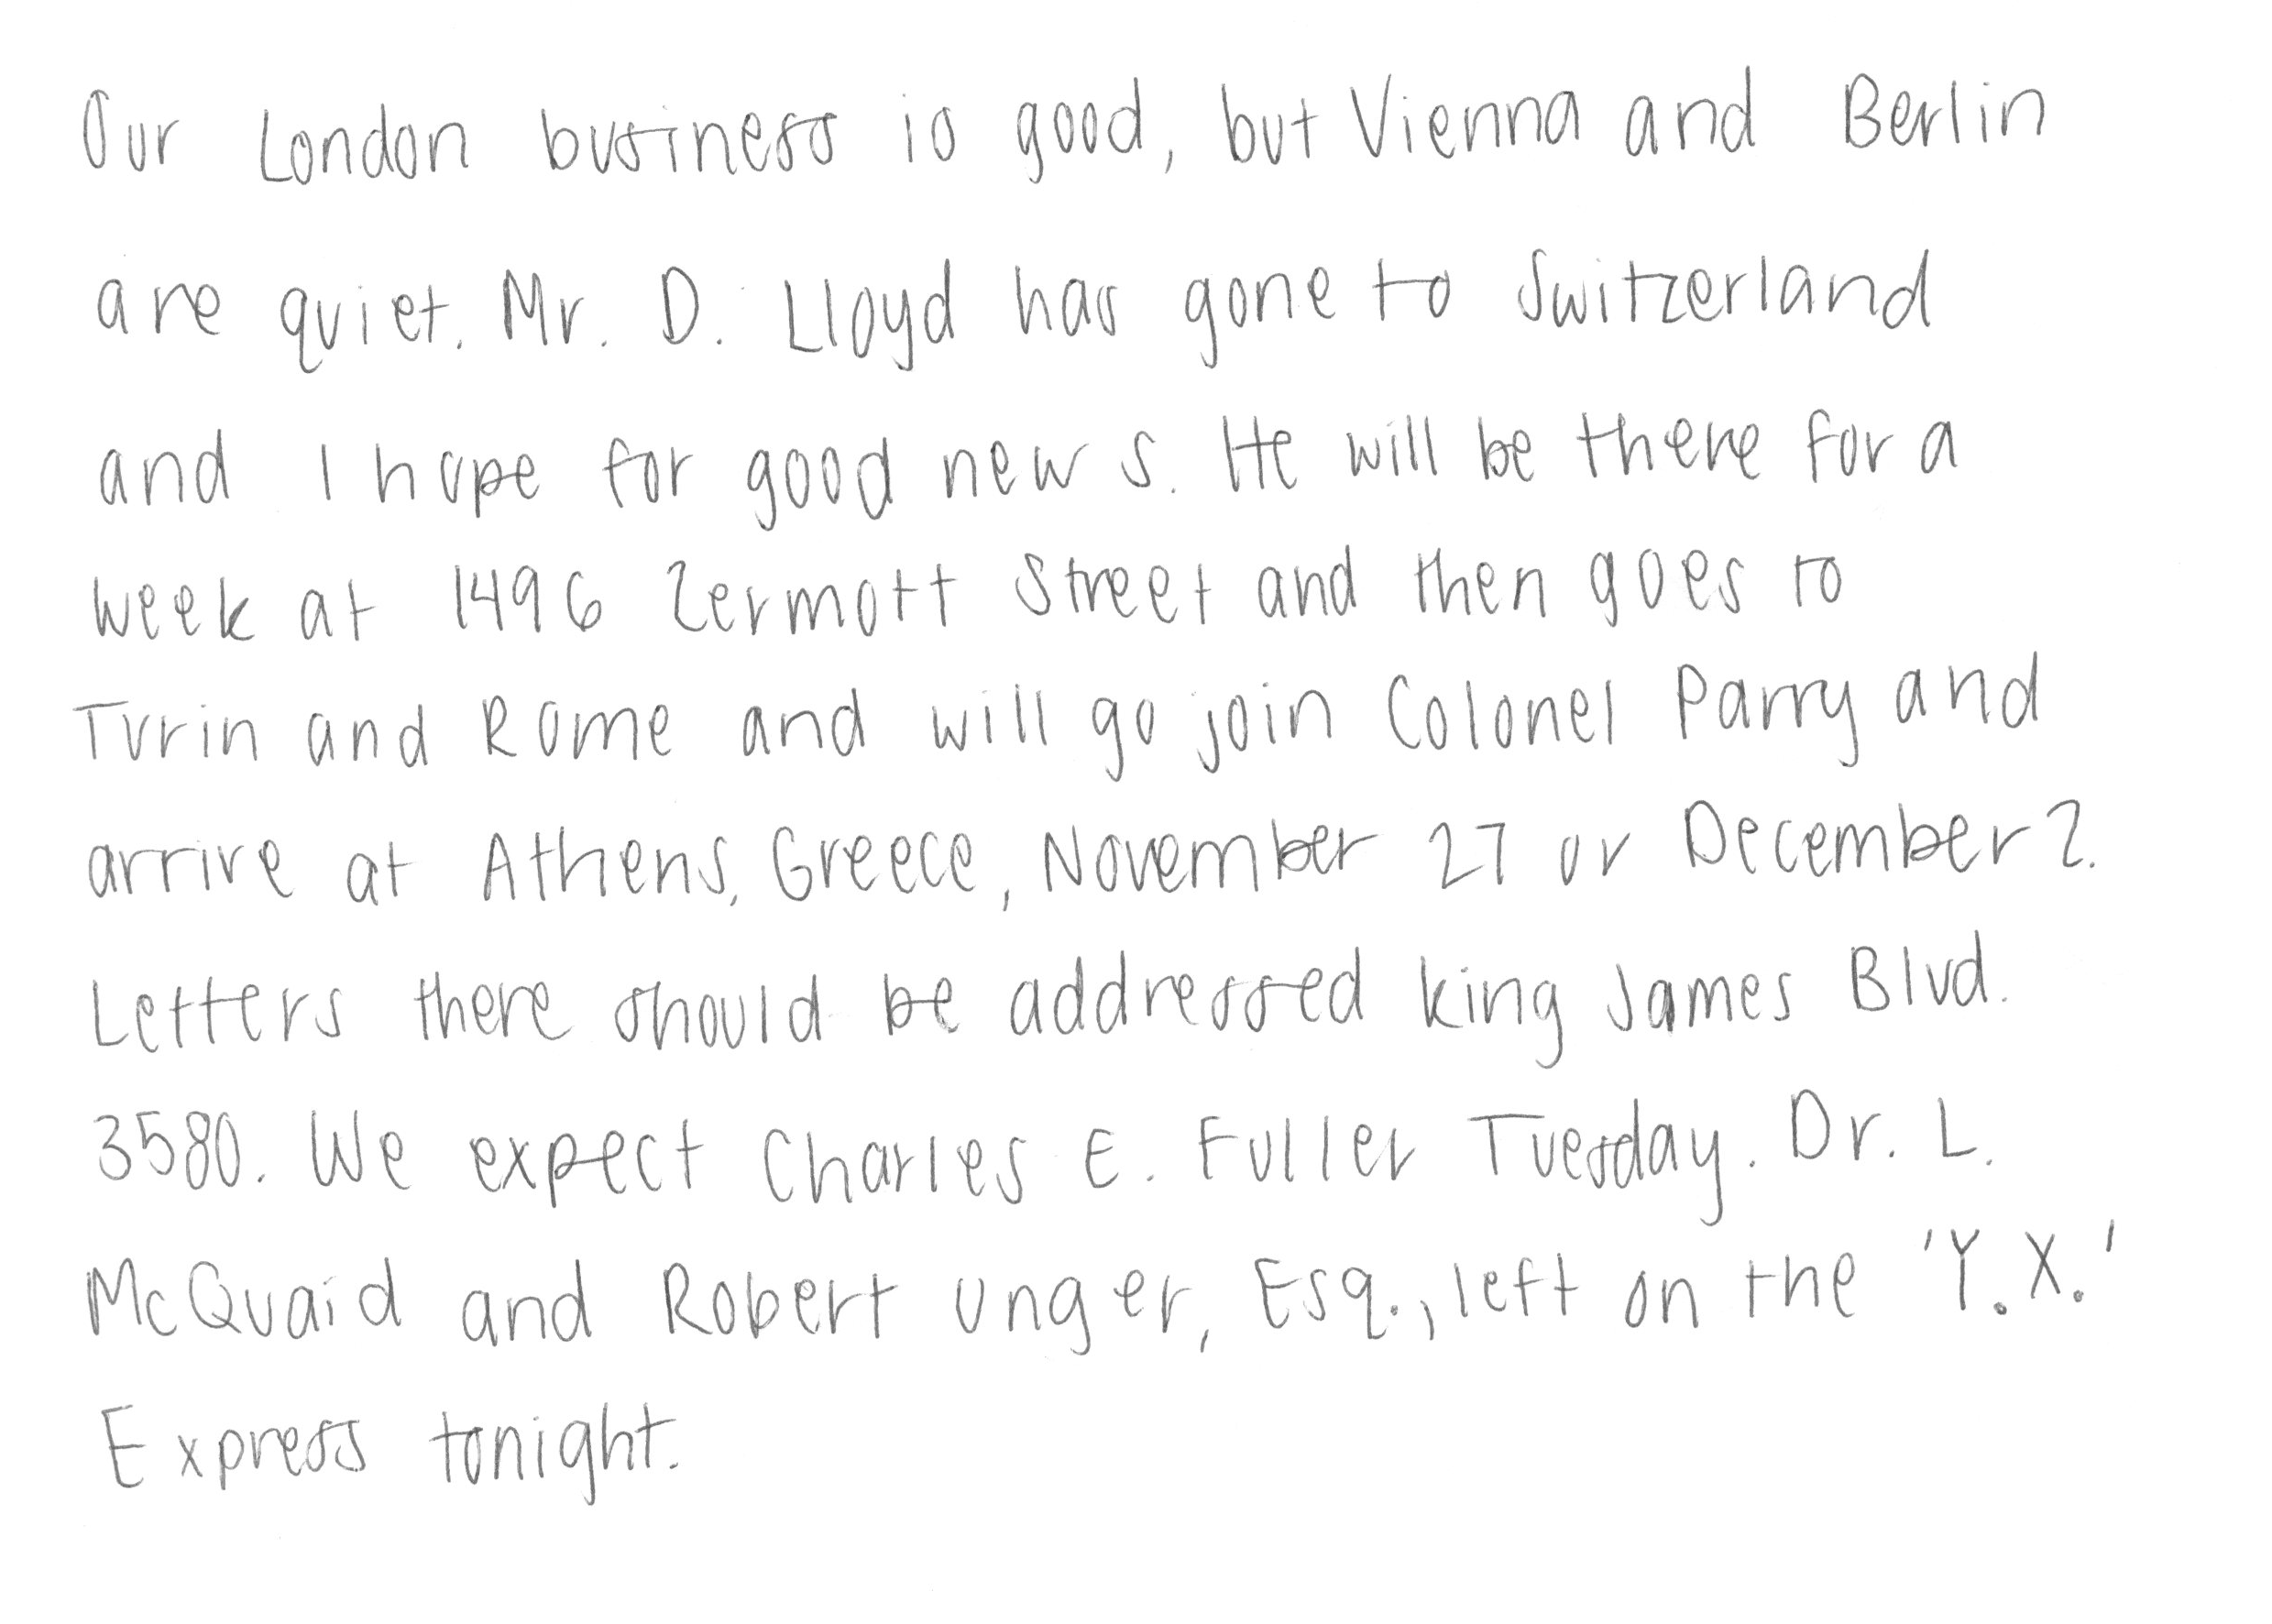 Our London business is good, but Vienna and Berlin
are quiet. Mr. D. Lloyd has gone to Switzerland
and I hope for good news. He will be there for a
week at 1496 Zermott Street and then goes to
Turin and Rome and will go join Colonel Parry and
arrive at Athens, Greece, November 27 or December 2.
Letters there should be addressed King James Blvd.
3580. We expect Charles E. Fuller Tuesday. Dr. L.
McQuaid and Robert Unger, Esq., left on the 'Y.X.'
Express tonight.